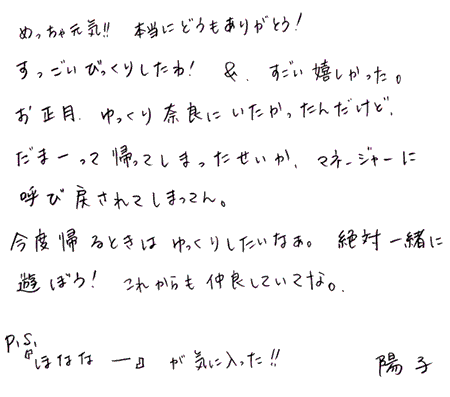 めっちゃ元気!! 本当にどうもありがとう!
すっごいびっくりしたわ! &、すごい嬉しかった。
お正月、ゆっくり奈良にいたかったんだけど、
だまーって帰ってしまったせいか、マネージャーに
呼び戻されてしまってん。
今度帰るときはゆっくりしたいなぁ。絶対一緒に
遊ぼう! これからも仲良していてな。
P.S.
『ほななー』が気に入った!! 陽子